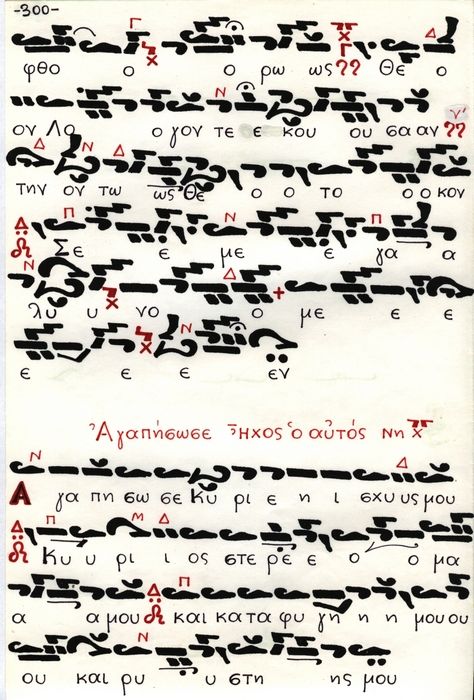 -300-
φθο ο ο ρω ως?? Θε ο
ον Λο ο γον τε ε κου ου σα αν ??
την ον τω ως Θε ο ο το ο ο κον
Σε ε με ε γα α
λυ υ νο ο με ε ε
ε ε ε εν
Ἀγαπήσωσε Ἦχος ὁ αὐτός Νη
Α γα πη σω σε Κυ ρι ε η ι σχυ υς μου
Κυ υ ρι ι ος στε ρε ε ο ο μα
α α μου και κα τα φυ γη η η μου ου
ου και ρυ υ στη ης μου